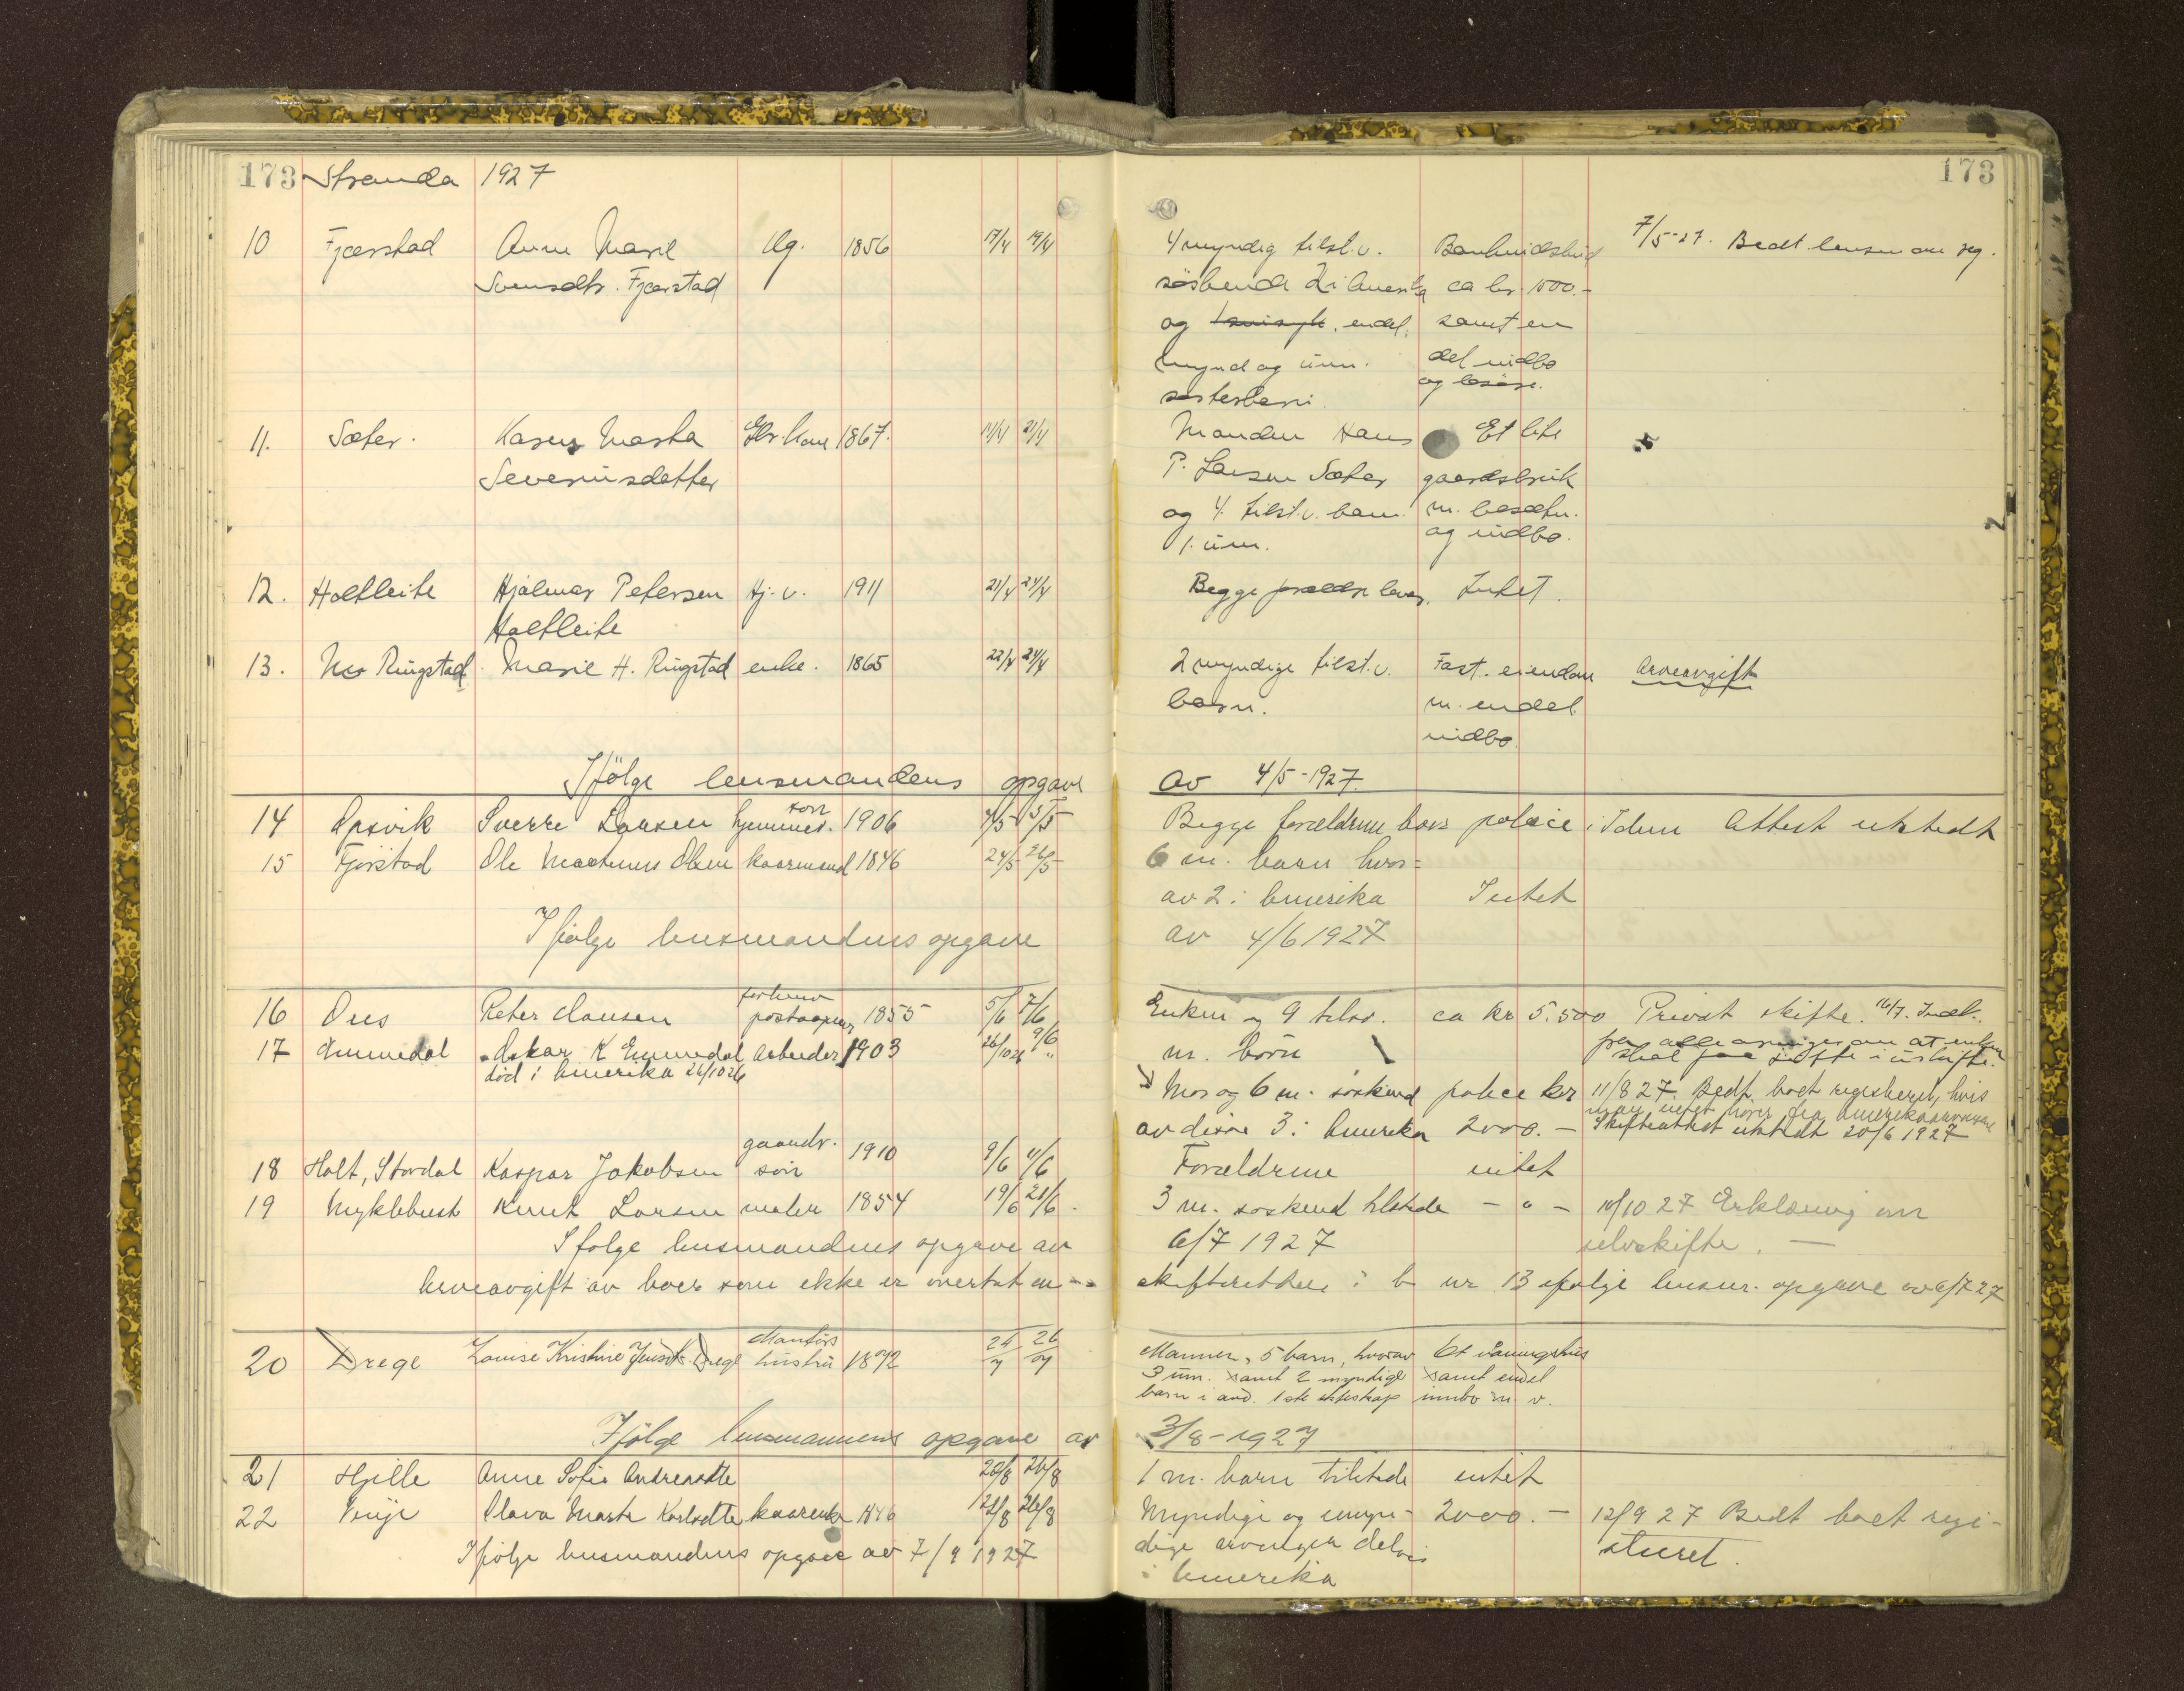 173 Stranda 1927
173
10 Fjærstad Anne Marie Ug. 1856 17/4 19/4 4 myndig tilst.v. Bankindskud 7/5-27. Bedt lensm om reg.
Svensdtr. Fjærstad søskende 2 i Amerika ca kr. 1500.-
og endel samt en
mynd og um. del indbo
søsterbarn. og løsøre.
11. Sæter. Karen Marta Gbr. kone 1867. 14/4 21/4 Manden Hans Et lite
Severinsdatter P. Larsen Sæter gaardsbruk
og 4 tilst.v. barn. m. besætn.
1. um. og indbo.
12. Holtleite Hjalmar Petersen Hj. v. 1911 21/4 24/4 Begge foreldre lever. Intet.
Holtleite
13. Mo Ringstad. Marie H. Ringstad enke. 1865 22/4 24/4 2 myndige tilst.v. Fast. eiendom Arveavgift
barn. m. endel
indbo.
Ifölge lensmandens opgave av 4/5-1927.
14 Opsvik Sverre Larsen hjemmev. søn 1906 4/5 5/5 Begge forældrene lever police i Idun Attest utstedt
15 Fjørstad Ole Martinus Olsen kaarmand 1846 24/5 26/5 6 m. barn hvor=
av 2 i Amerika Intet
Ifølge lensmandens opgave av 4/6 1927
16 Øies Peter Clausen forhenv postaapner 1855 5/6 7/6 Enken og 9 tilst. ca kr 5.500 Privat skifte. 16/7. Indk.
m. børn fra alle arvinger om at enken
skal faa sitte i uskifte.
17 Emmedal Oskar K Emmedal Arbeider 1903 26/10 26 9/6 Mor og 6 m. søskend police kr 11/8 27. Bedt boet registreret, hvis
død i Amerika 26/10 26 av disse 3 i Amerika 2000.- man intet hører fra Amerika
Skifteattest utstedt 20/6 1927
18 Holt, Stordal Kaspar Jakobsen gaardbr. søn 1910 9/6 11/6 Forældrene intet
19 Myklebust Knut Larsen maler 1854 19/6 21/6. 3 m. søskend tilstede - " - 10/10 27 Erklæring om
selvskifte. -
Ifølge lensmandens opgave av 6/7 1927
Arveavgift av boer som ikke er overtat av skifteretten: b nr 13 ifølge lensm. opgave av 6/7 27
20 Drege Louise Kristine Jensdtr. Drege Murers hustru 1872 24/7 26/7 Mannen, 5 barn, hvorav Et vaaningshus
3 um. samt 2 myndige samt endel
barn i avd. 1ste ekteskap innbo m. v.
Ifölge lensmannens opgave av 3/8-1927
21 Hjelle Anne Sofie Andreasdtr 20/8 26/8 1 m. barn tilstede intet
22 Vinje Olava Marta Karlsdtr kaarenke 1846 21/8 26/8 Myndige og umyn- 2000.- 12/9 27 Bedt boet regi-
dige arvinger delvis streret.
i Amerika
Ifølge lensmandens opgave av 7/9 1927